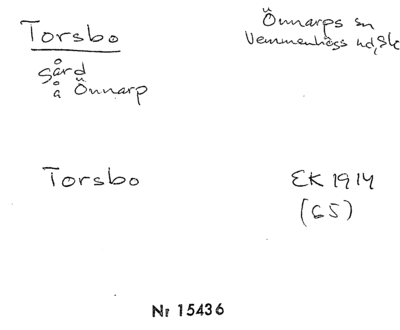 Torsbo
Önnarps sn
Vemmenhögs hd, Sk
gård
å Önnarp
Torsbo
EK 1914
(65)
Nr 15436